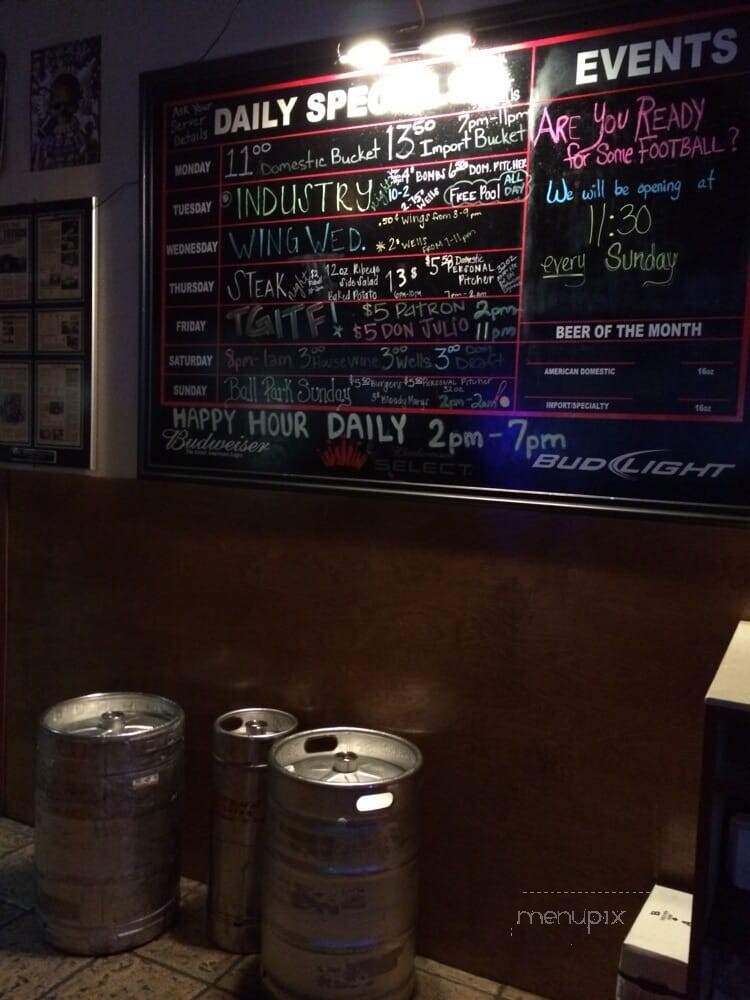 Ask Your
Server
Details
DAILY SPEC
7pm-11pm
MONDAY
11⁰⁰ Domestic Bucket 13⁵⁰ Import Bucket
TUESDAY
INDUSTRY Night
10-2
BOMBS
DOM. PITCHER
WELLS
FREE Pool ALL DAY
WEDNESDAY
WING WED.
.50¢ Wings from 3-9pm
* 2⁰ Wells FROM 7-11pm
THURSDAY
STEAK night
12oz Ribeye
Side Salad
Baked Potato
13$
6pm-10pm
$5⁵⁰ Domestic
PERSONAL
Pitcher
32oz
7pm-2am
FRIDAY
TGITF!
$5 PATRON
* $5 DON JULIO
2pm
11pm
SATURDAY
8pm-1am 3⁰⁰ House Wine 3⁰⁰ Wells 3⁰⁰ Dom Draft
SUNDAY
Ball Park Sunday
Burgers
PERSONAL Pitcher
32oz
Bloody Marys
2pm-2am!
HAPPY HOUR DAILY 2pm-7pm
Budweiser
SELECT
BUD LIGHT
EVENTS
ARE YOU READY
for Some FOOTBALL?
We will be opening at
11:30
every Sunday
BEER OF THE MONTH
AMERICAN DOMESTIC 16oz
IMPORT/SPECIALTY 16oz
menupix